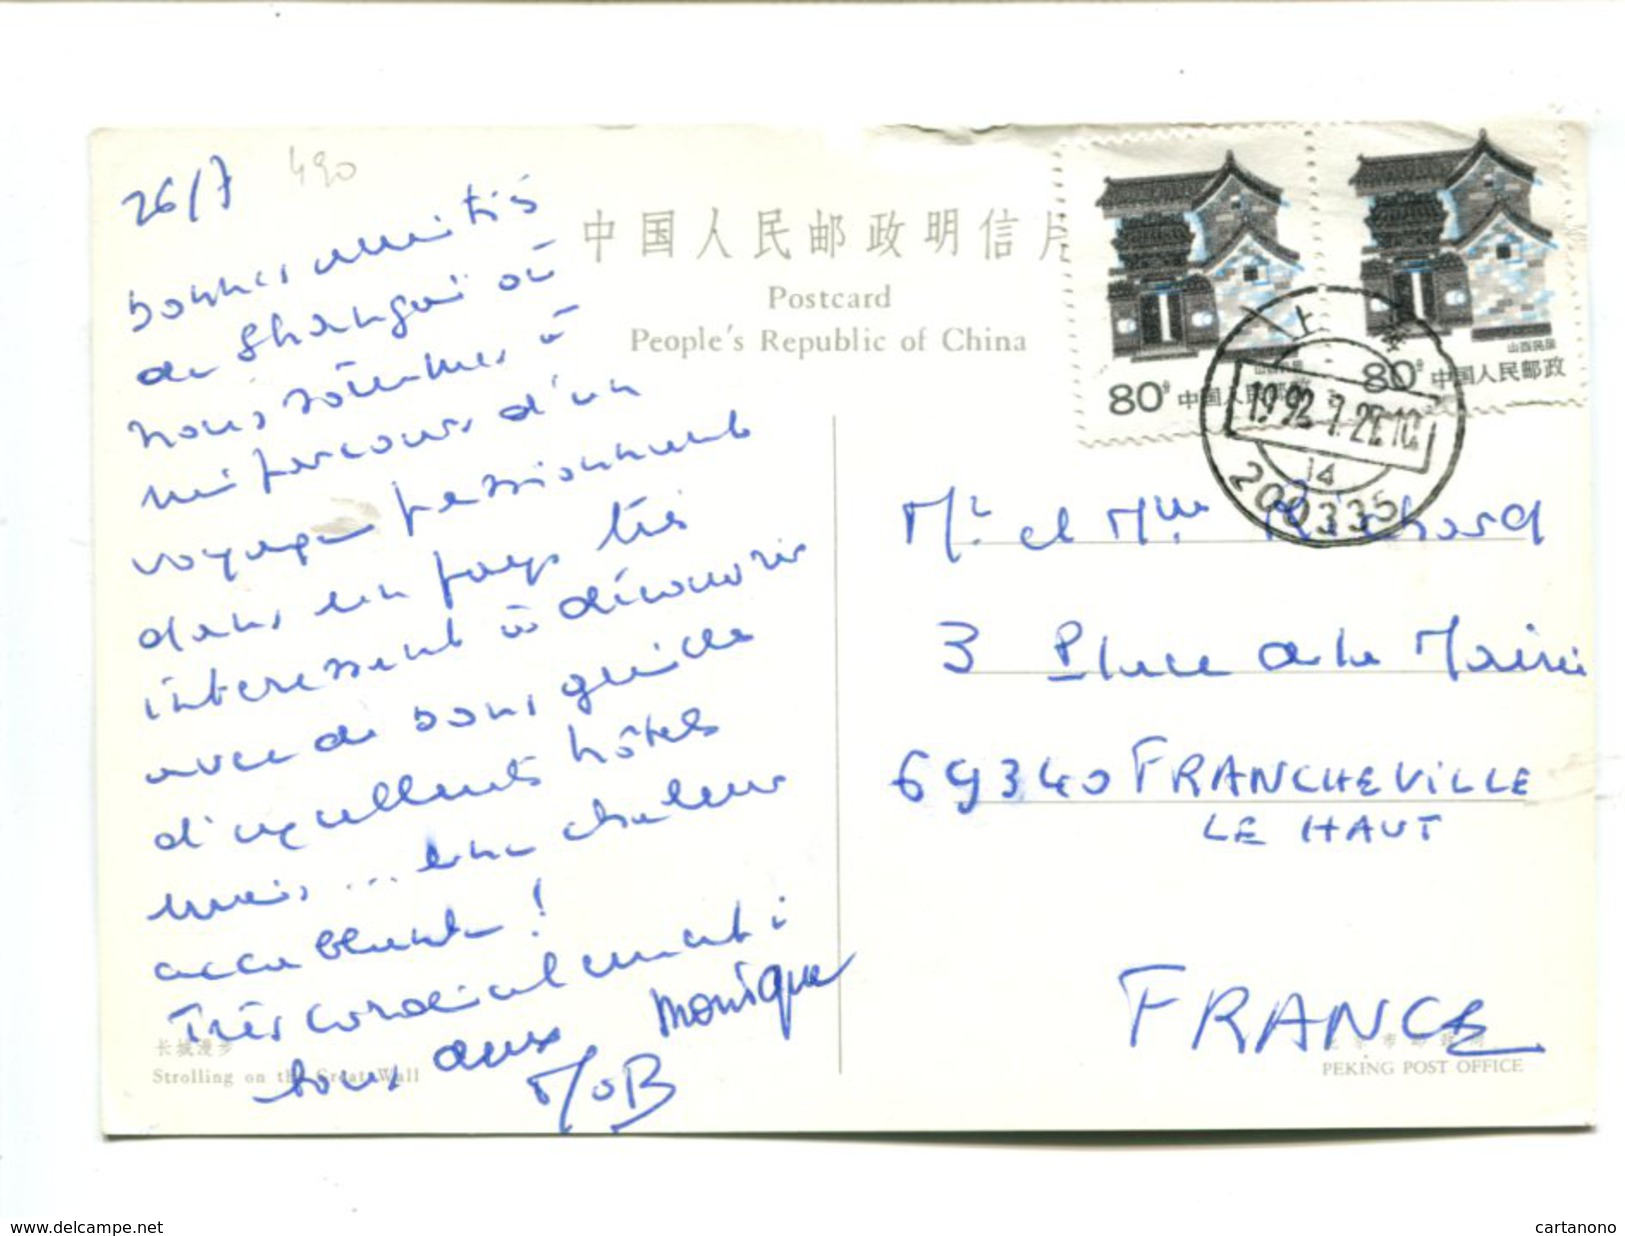 26/7
490
bonnes amitiés
de Shangaï où
nous sommes à
mi parcours d'un
voyage passionnant
dans un pays très
interessant à découvrir
avec de bons guides
d'excellents hôtels
mais, ... une chaleur
accablante !
Très cordialement à
tous deux Monique
中国人民邮政明信片
Postcard
People's Republic of China
80分 中国人民邮政
山西民居
80分 中国人民邮政
上
1992.7.2
14
200335
Mr et Mme Richard
3 Place de la Mairie
69340 FRANCHEVILLE
LE HAUT
FRANCE
长城漫步
Strolling on the Great Wall
PEKING POST OFFICE
www.delcampe.net
cartanono